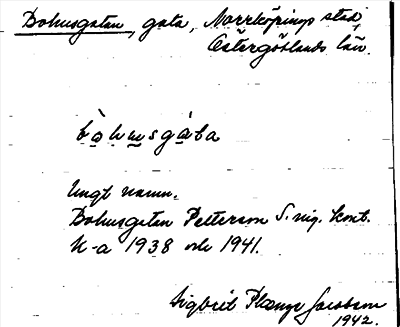 Bohusgatan, gata, Norrköpings stad,
Östergötlands län.
bohusgata
Ungt namn.
Bohusgatan Petterson S. mig. kont.
K-a 1938 och 1941.
Sigbrit Plænge Jacobson
1942.